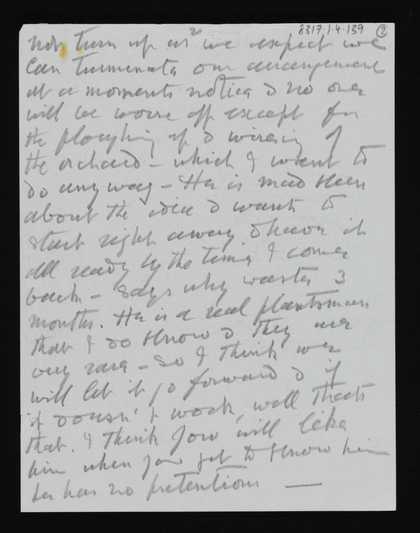 8317.1.4.139 2
not turn up as we expect we
can terminate our arrangement
at a moments notice & no one
will be worse off except for
the ploughing up & wiring of
the orchard – which I want to
do any way – He is mad keen
about the idea & wants to
start right away & have it
all ready by the time I come
back – says why waste 3
months. He is a real plantsman
that I do know & they are
very rare – so I think we
will let it go forward & if
it doesn't work, well thats
that. I think you will like
him when you get to know him
he has no pretentions —